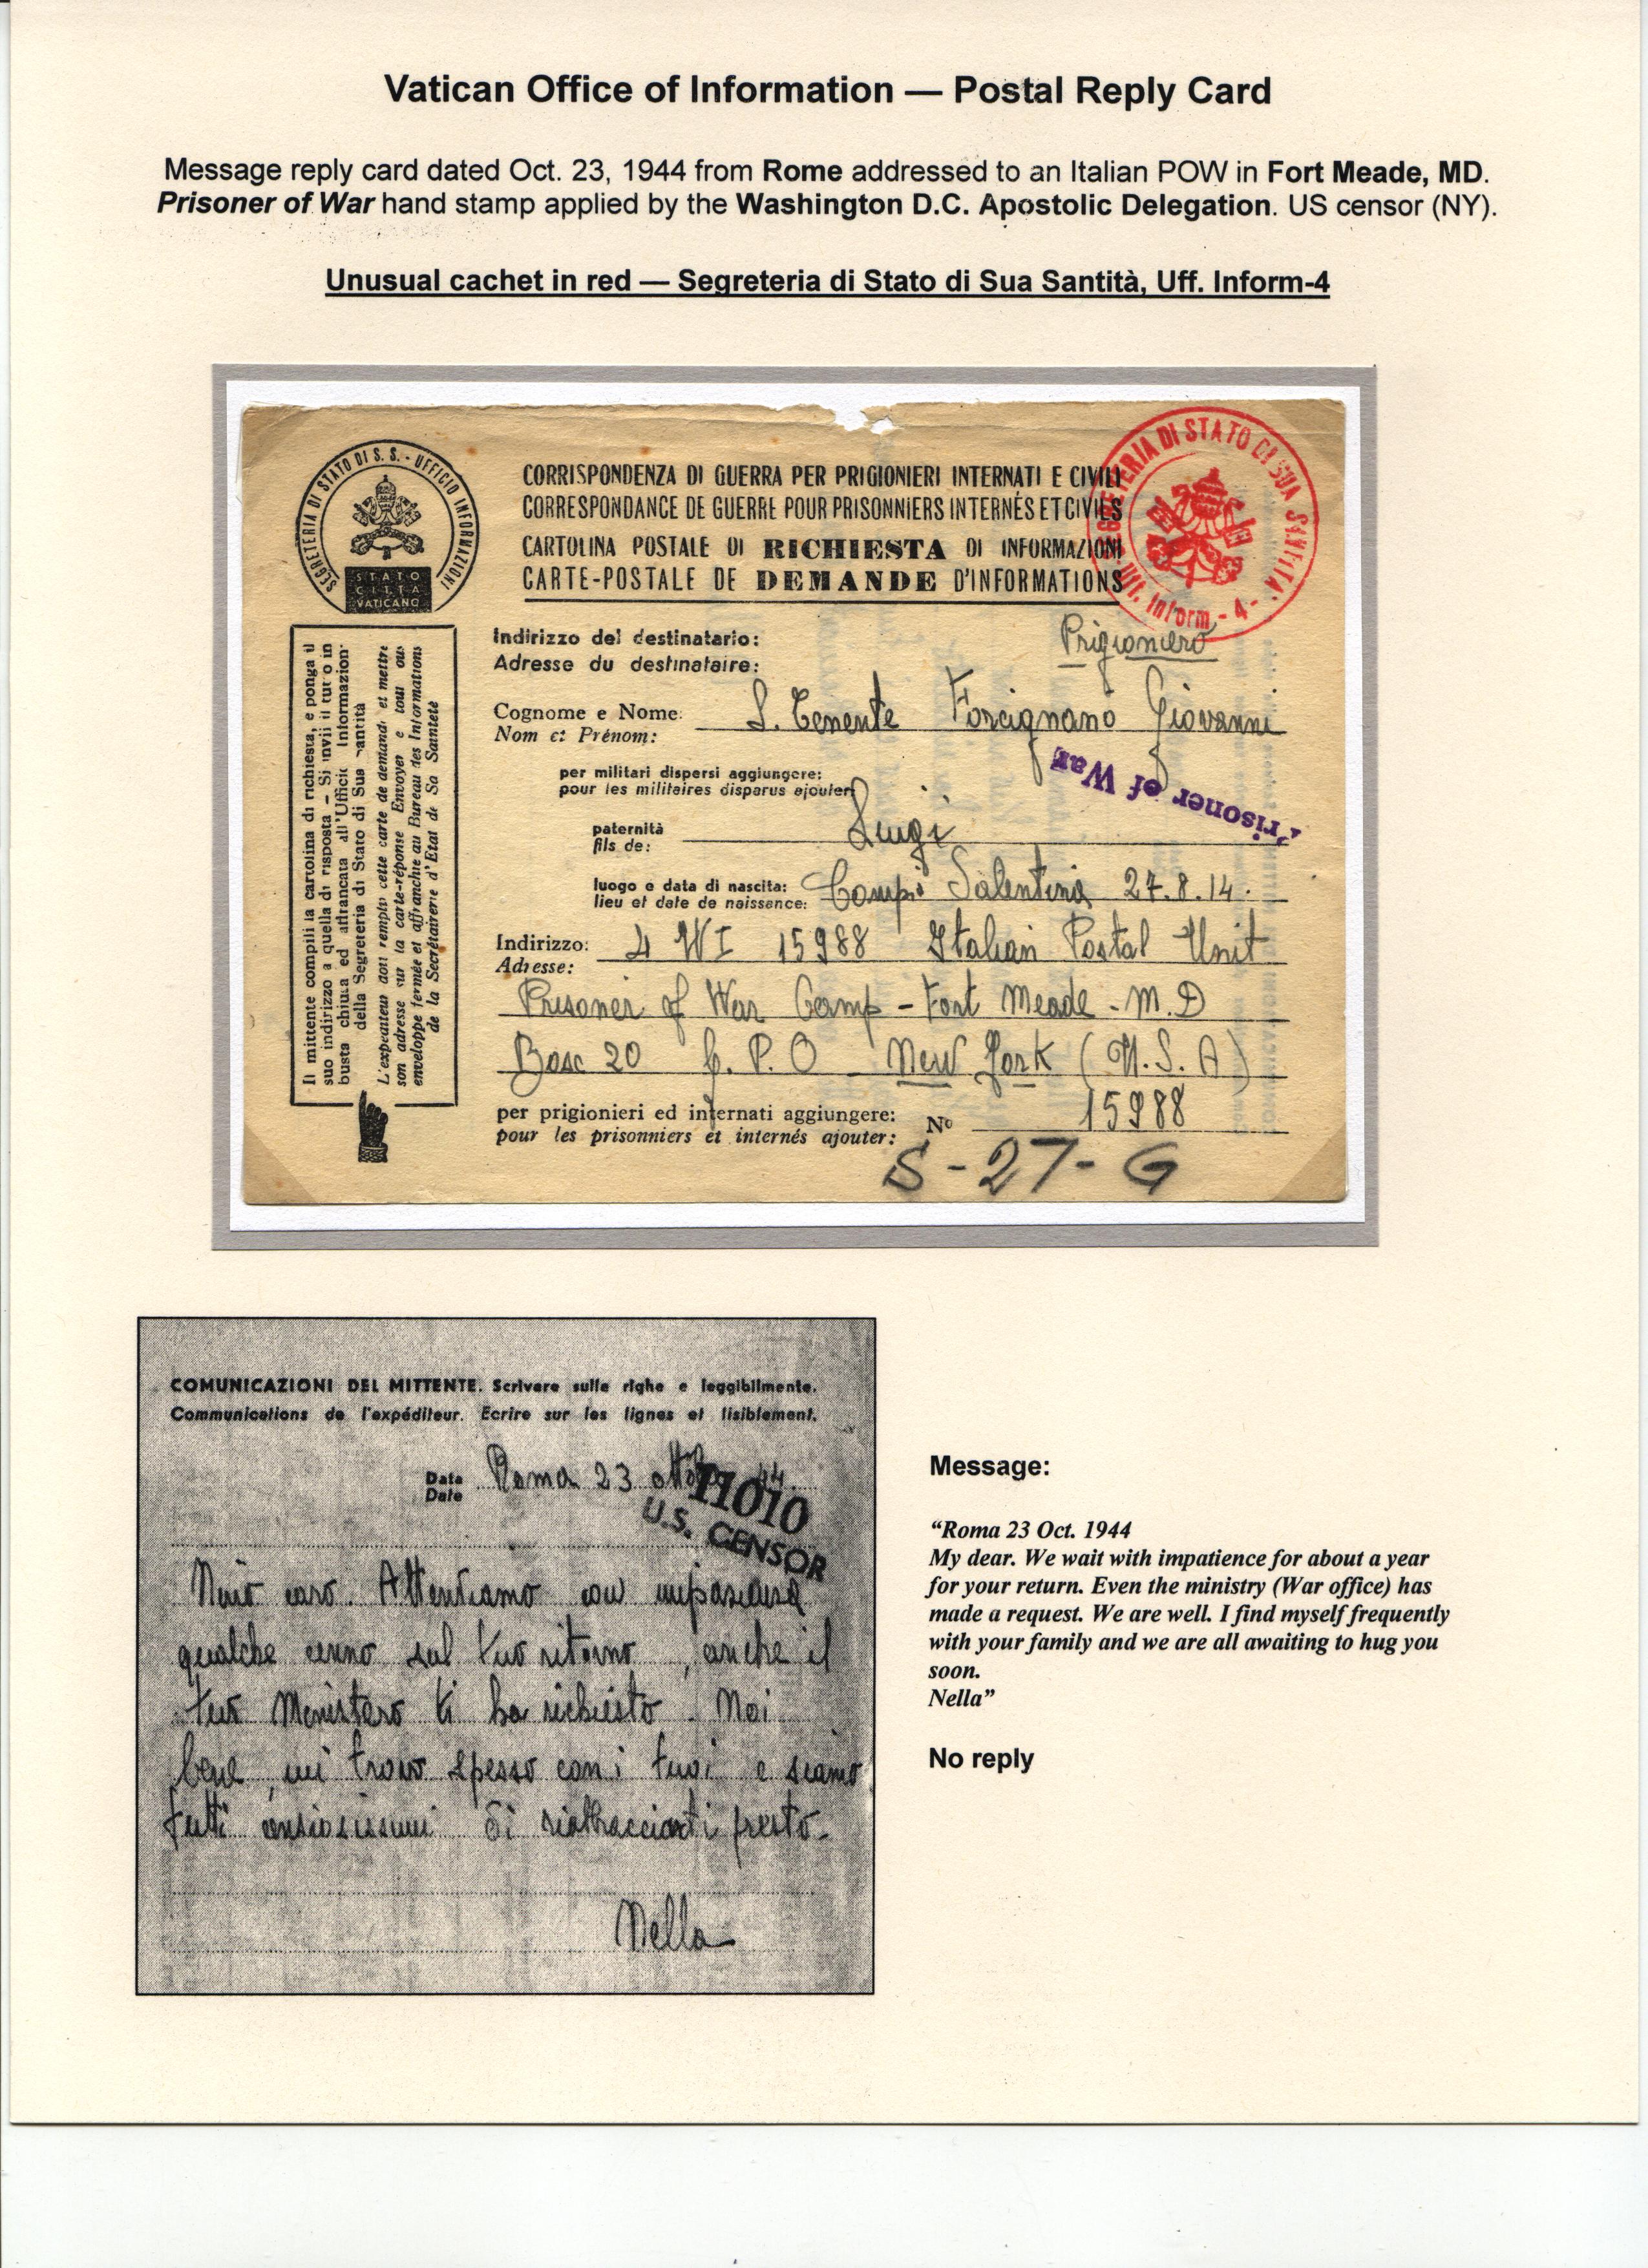 Vatican Office of Information — Postal Reply Card
Message reply card dated Oct. 23, 1944 from Rome addressed to an Italian POW in Fort Meade, MD.
Prisoner of War hand stamp applied by the Washington D.C. Apostolic Delegation. US censor (NY).
Unusual cachet in red — Segreteria di Stato di Sua Santità, Uff. Inform-4
SEGRETERIA DI STATO DI S. S. - UFFICIO INFORMAZIONI
STATO
CITTÀ
VATICANO
CORRISPONDENZA DI GUERRA PER PRIGIONIERI INTERNATI E CIVILI
CORRESPONDANCE DE GUERRE POUR PRISONNIERS INTERNÉS ET CIVILES
CARTOLINA POSTALE DI RICHIESTA DI INFORMAZIONI
CARTE-POSTALE DE DEMANDE D'INFORMATIONS
SEGRETERIA DI STATO DI SUA SANTITA'
Uff. Inform - 4 -
Il mittente compili la cartolina di richiesta, e ponga il
suo indirizzo a quella di risposta - Si invii il tutto in
busta chiusa ed affrancata all'Ufficio Informazion
della Segreteria di Stato di Sua Santità
L'expediteur doit remplir cette carte de demande et mettre
son adresse sur la carte-réponse Envoyer e tout ous
enveloppe fermée et affranchie au Bureau des Informations
de la Secrétairerie d'Etat de Sa Sainteté
Indirizzo del destinatario:
Adresse du destinataire:
Prigioniero
Cognome e Nome: S. Tenente Forcignanò Giovanni
Nom et Prénom:
Prisoner of War
per militari dispersi aggiungere:
pour les militaires disparus ajouter:
paternità Luigi
fils de:
luogo e data di nascita: Campi Salentina 27.8.14.
lieu et date de naissance:
Indirizzo: 4 WI 15988 Italian Postal Unit
Adresse:
Prisoner of War Camp - Fort Meade - M.D
Bosc 20 G. P. O - New York (U.S.A)
per prigionieri ed internati aggiungere: Nº 15988
pour les prisonniers et internés ajouter:
S - 27 - G
COMUNICAZIONI DEL MITTENTE. Scrivere sulle righe e leggibilmente.
Communications de l'expéditeur. Ecrire sur les lignes et lisiblement.
Data Roma 23 ottobre 44.
Date
11010
U.S. CENSOR
Nino caro. Attendiamo con impazienza
qualche cenno sul tuo ritorno, anche il
tuo Ministero ti ha richiesto. Noi
bene, mi trovo spesso con i tuoi e siamo
tutti ansiosissimi di riabbracciarti presto.
Nella
Message:
“Roma 23 Oct. 1944
My dear. We wait with impatience for about a year
for your return. Even the ministry (War office) has
made a request. We are well. I find myself frequently
with your family and we are all awaiting to hug you
soon.
Nella”
No reply